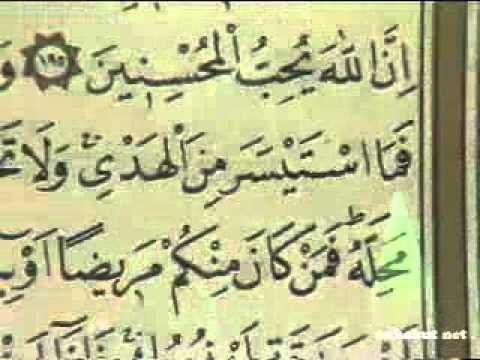 إِنَّ اللّٰهَ يُحِبُّ الْمُحْسِنِينَ ١٩٥ وَ
فَمَا اسْتَيْسَرَ مِنَ الْهَدْيِ وَلَا تَحْ
مَحِلَّهُ فَمَنْ كَانَ مِنْكُمْ مَرِيضًا اَوْ بِ